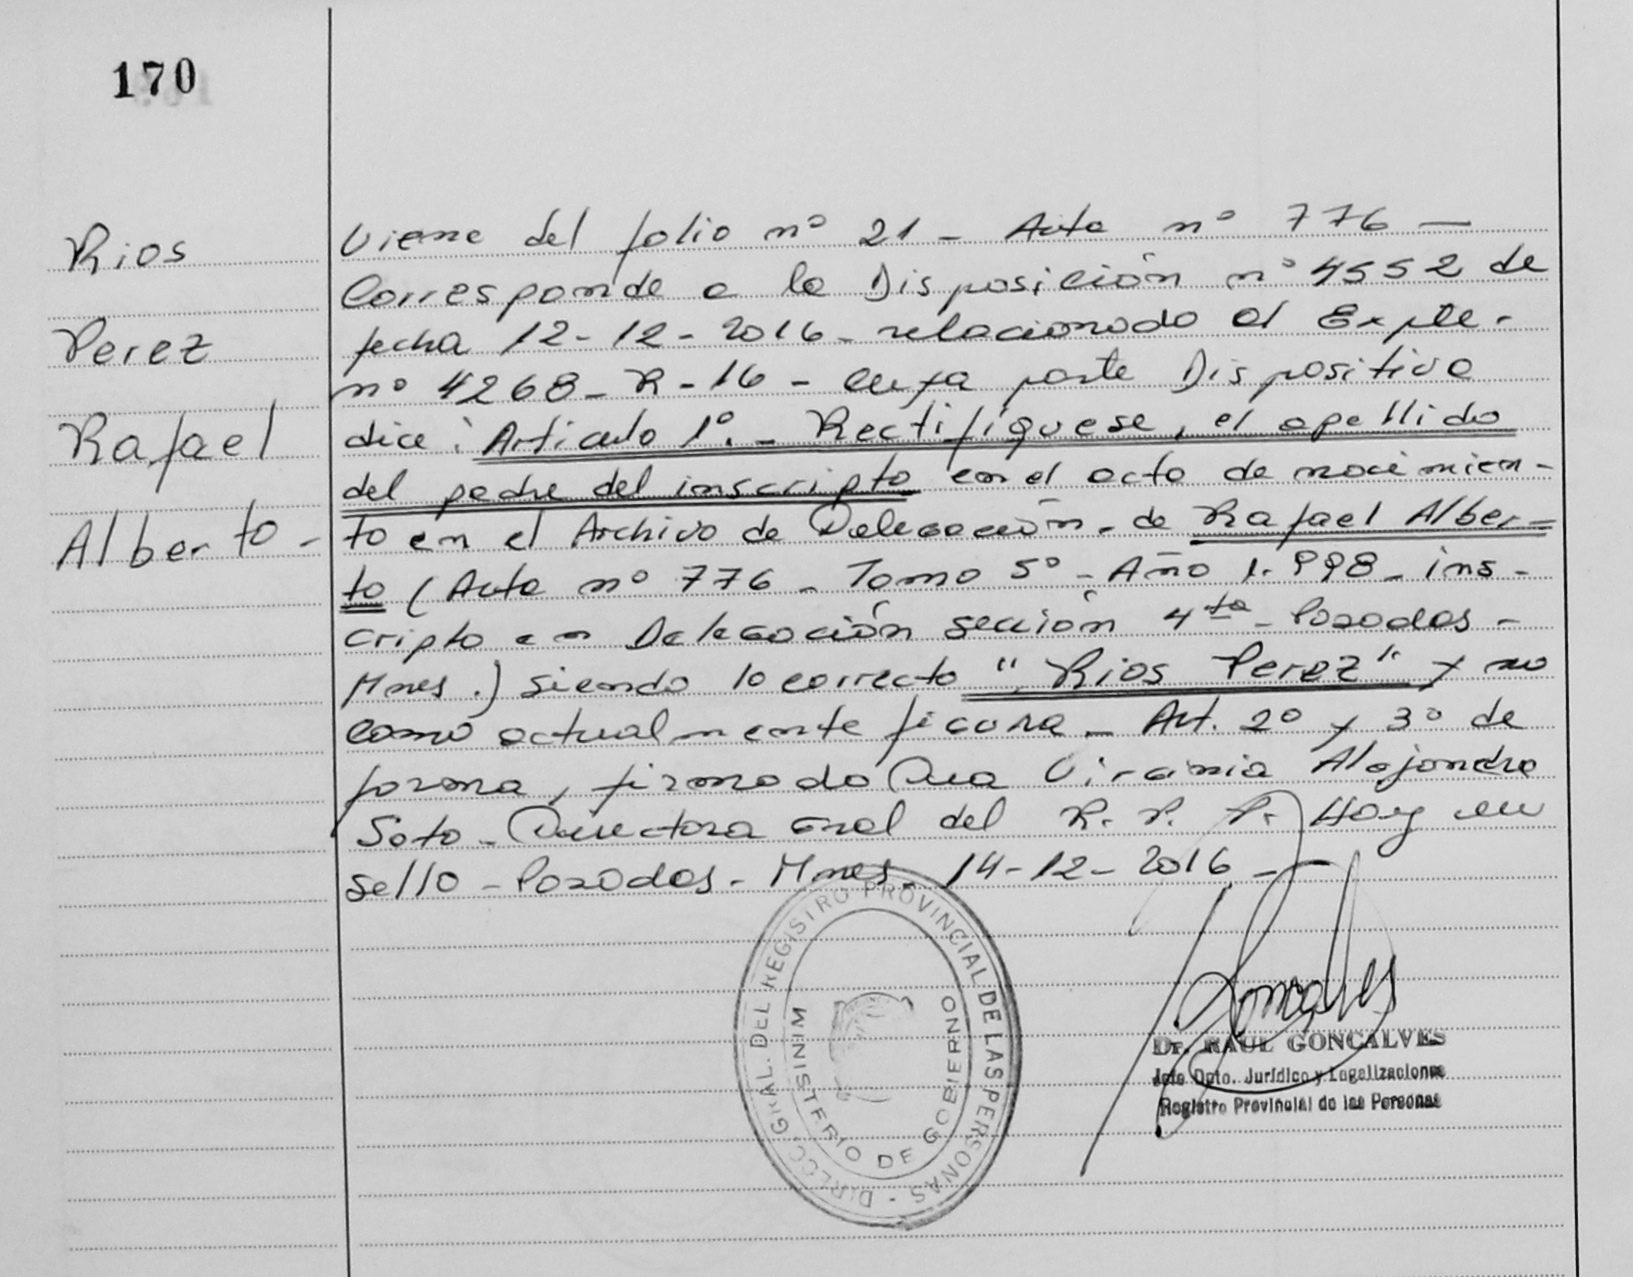 170
Rios
Perez
Rafael
Alberto -
Viene del folio nº 21 - Acta nº 776 -
Corresponde a la Disposición nº 4552 de
fecha 12-12-2016 - relacionado al Expte.
nº 4268 - R - 16 - cuya parte Dispositiva
dice: Articulo 1º. - Rectifíquese, el apellido
del padre del inscripto en el acta de nacimien-
to en el Archivo de Delegación - de Rafael Alber-
to (Acta nº 776 - Tomo 5º - Año 1.998 - ins-
cripto en Delegación sección 4ta - Posadas -
Mnes.) siendo lo correcto "Rios Perez" y no
como actualmente figura - Art. 2º y 3º de
forma, firmado Dra Virginia Alejandra
Soto - Directora Gral del R. P. P. Hay un
sello - Posadas - Mnes - 14-12-2016 -
DIRECC. GRAL. DEL REGISTRO PROVINCIAL DE LAS PERSONAS -
MINISTERIO DE GOBIERNO
Goncalves
Dr. RAUL GONCALVES
Jefe Dpto. Jurídico y Legalizaciones
Registro Provincial de las Personas